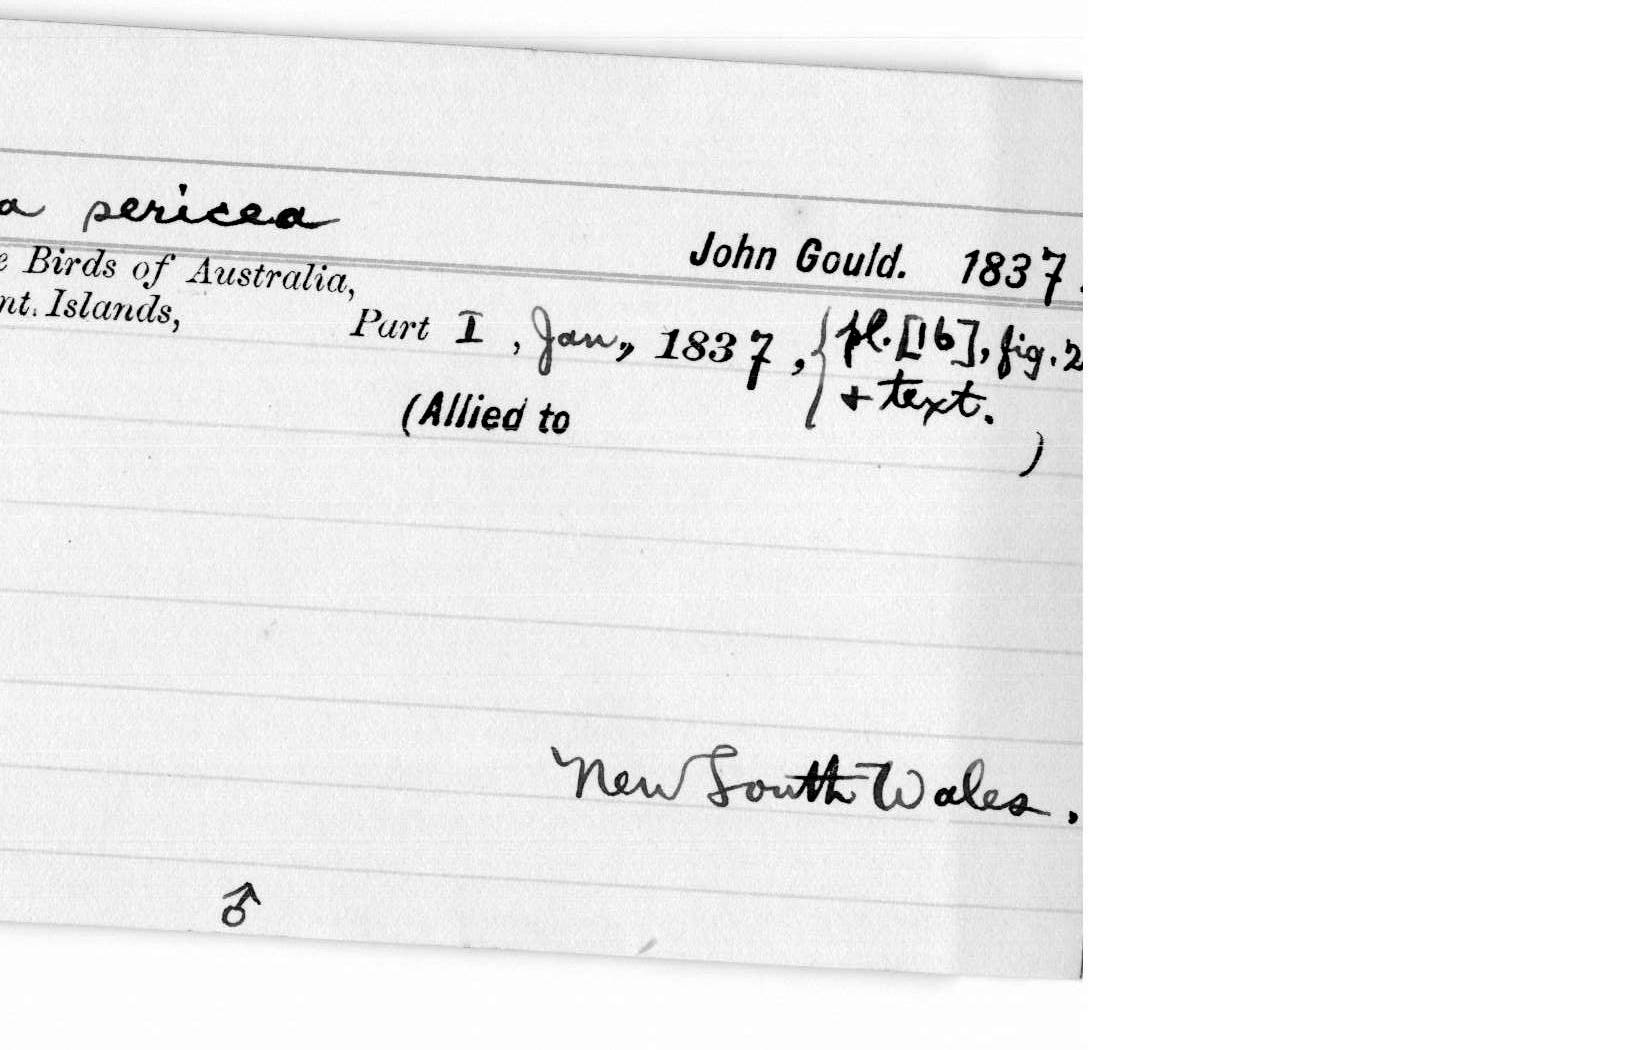 a sericea
John Gould. 1837.
e Birds of Australia,
nt. Islands,
Part I, Jan., 1837, { pl. [16], fig. 2
+ text.
(Allied to )
New South Wales.
♂